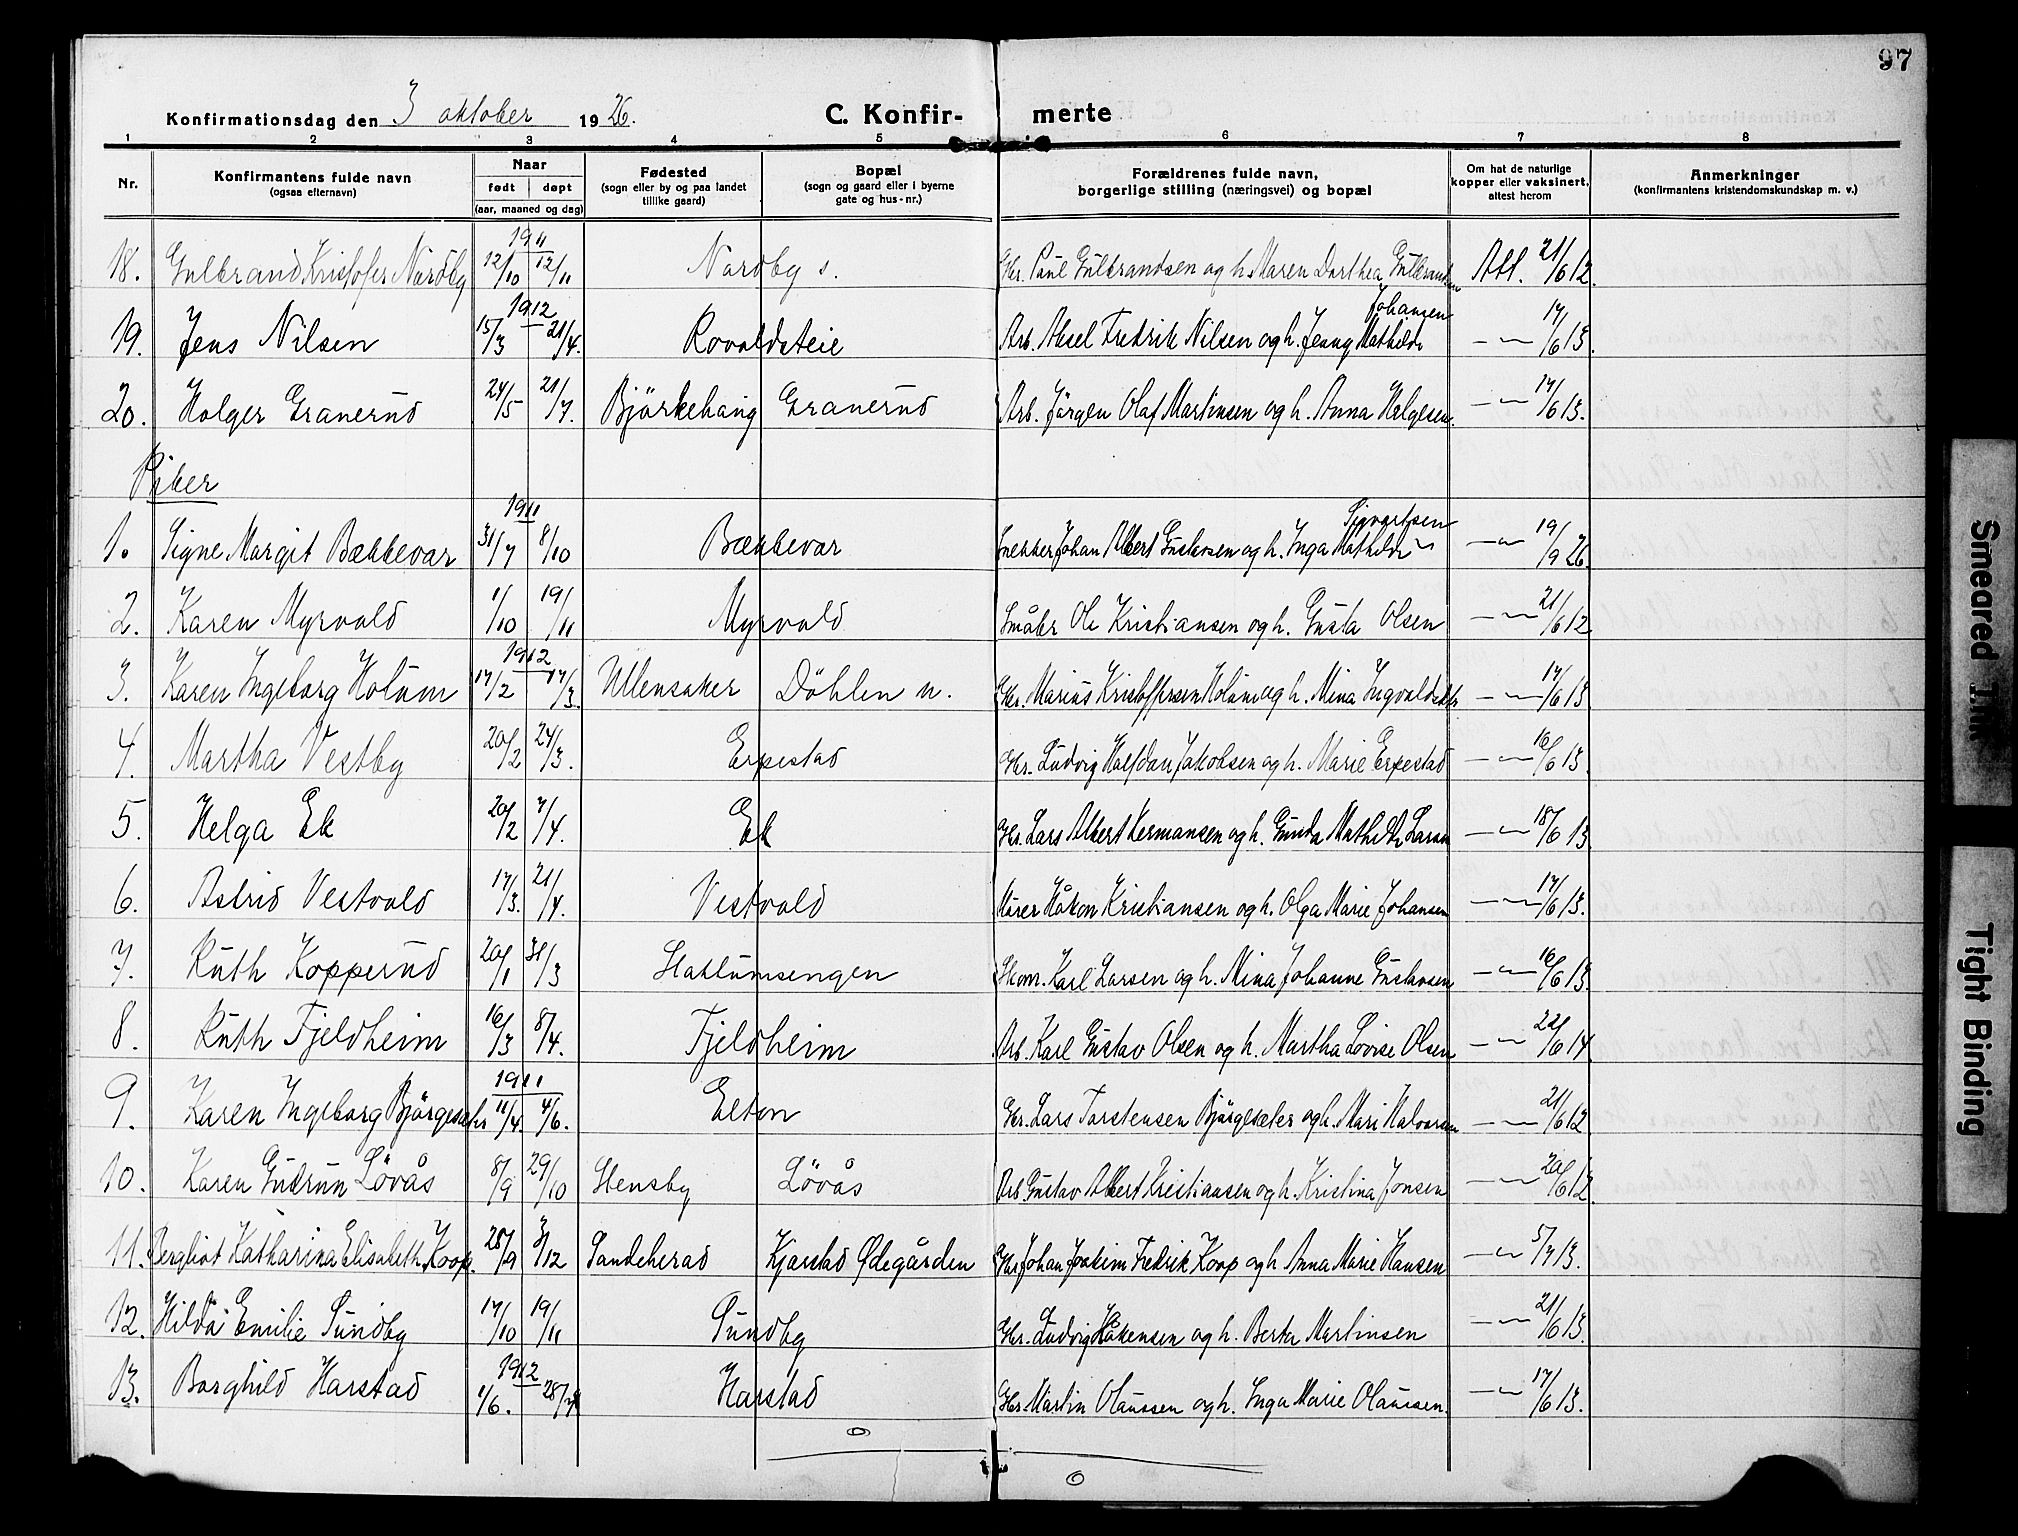 97
Konfirmationsdag den 3 oktober 1926.
C. Konfir- merte
1 2 3 4 5 6 7 8
Nr. Konfirmantens fulde navn (ogsaa efternavn) Naar født døpt (aar, maaned og dag) Fødested (sogn eller by og paa landet tillike gaard) Bopæl (sogn og gaard eller i byerne gate og hus-nr.) Forældrenes fulde navn, borgerlige stilling (næringsvei) og bopæl Om hat de naturlige kopper eller vaksinert, attest herom Anmerkninger (konfirmantens kristendomskundskap m. v.)
1911
18. Gulbrand Kristofer Nordby 12/10 12/11 Nordby s. Gbr. Paul Gulbrandsen og h. Maren Dorthea Gulbrandsen Att. 21/6 12.
1912 Johansen
19. Jens Nilsen 15/3 21/4. Rovoldsteie Arb. Aksel Fredrik Nilsen og h. Jenny Mathilde — 17/6 13.
20. Holger Granerud 24/5 21/7. Bjørkehaug Granerud Arb. Jørgen Olaf Martinsen og h. Anna Helgesen. — 17/6 13.
Piker
1911 Sigvartsen
1. Signe Margit Bækkevar 31/7 8/10 Bækkevar Snekker Johan Albert Gustavsen og h. Inga Mathilde — 19/9 26.
2. Karen Myrvold 1/10 19/11 Myrvold Småbr Ole Kristiansen og h. Gusta Olsen — 21/6 12
1912
3. Karen Ingeborg Holum 17/2 17/3. Ullensaker Döhlen n. Gbr. Marius Kristoffersen Holum og h. Mina Ingvaldsdtr — 17/6 13
4. Martha Vestby 20/2 24/3. Erpestad Gbr. Ludvig Halfdan Jakobsen og h. Marie Erpestad — 16/6 13.
5. Helga Ek 20/2 7/4. Ek Gbr. Lars Albert Hermansen og h. Gunda Mathilde Larsen — 18/6 13
6. Astrid Vestvold 17/3. 21/4. Vestvold Murer Håkon Kristiansen og h. Olga Marie Johansen — 17/6 13.
7. Ruth Kopperud 20/1 31/3 Hattumsengen Skom. Karl Larsen og h. Mina Johanne Gustavsen — 16/6 13.
8. Ruth Fjeldheim 16/3 8/4. Fjeldheim Arb. Karl Gustav Olsen og h. Martha Lovise Olsen — 22/6 14.
1911
9. Karen Ingeborg Bjørgesæter 11/4. 4/6. Elton Gbr. Lars Torstensen Bjørgesæter og h. Mari Halvorsen — 21/6 12
10. Karen Gudrun Lövås 8/9 29/10 Stensby Lövås Arb. Gustav Albert Kristiansen og h. Kristina Jonsen — 20/6 12.
11. Bergliot Katharina Elisabeth Koop. 28/9 3/12 Sandeherad Kjærstad Ødegården Gbr. Johan Joakim Fredrik Koop og h. Anna Marie Hansen — 5/7 13.
12. Hilda Emilie Sundby 17/10 19/11 Sundby Gbr. Ludvig Håkensen og h. Berta Martinsen — 21/6 13.
1912
13. Borghild Harstad 1/6. 28/7 Harstad Gbr. Martin Olaussen og h. Inga Marie Olaussen. — 17/6 13.
Smeared Ink
Tight Binding